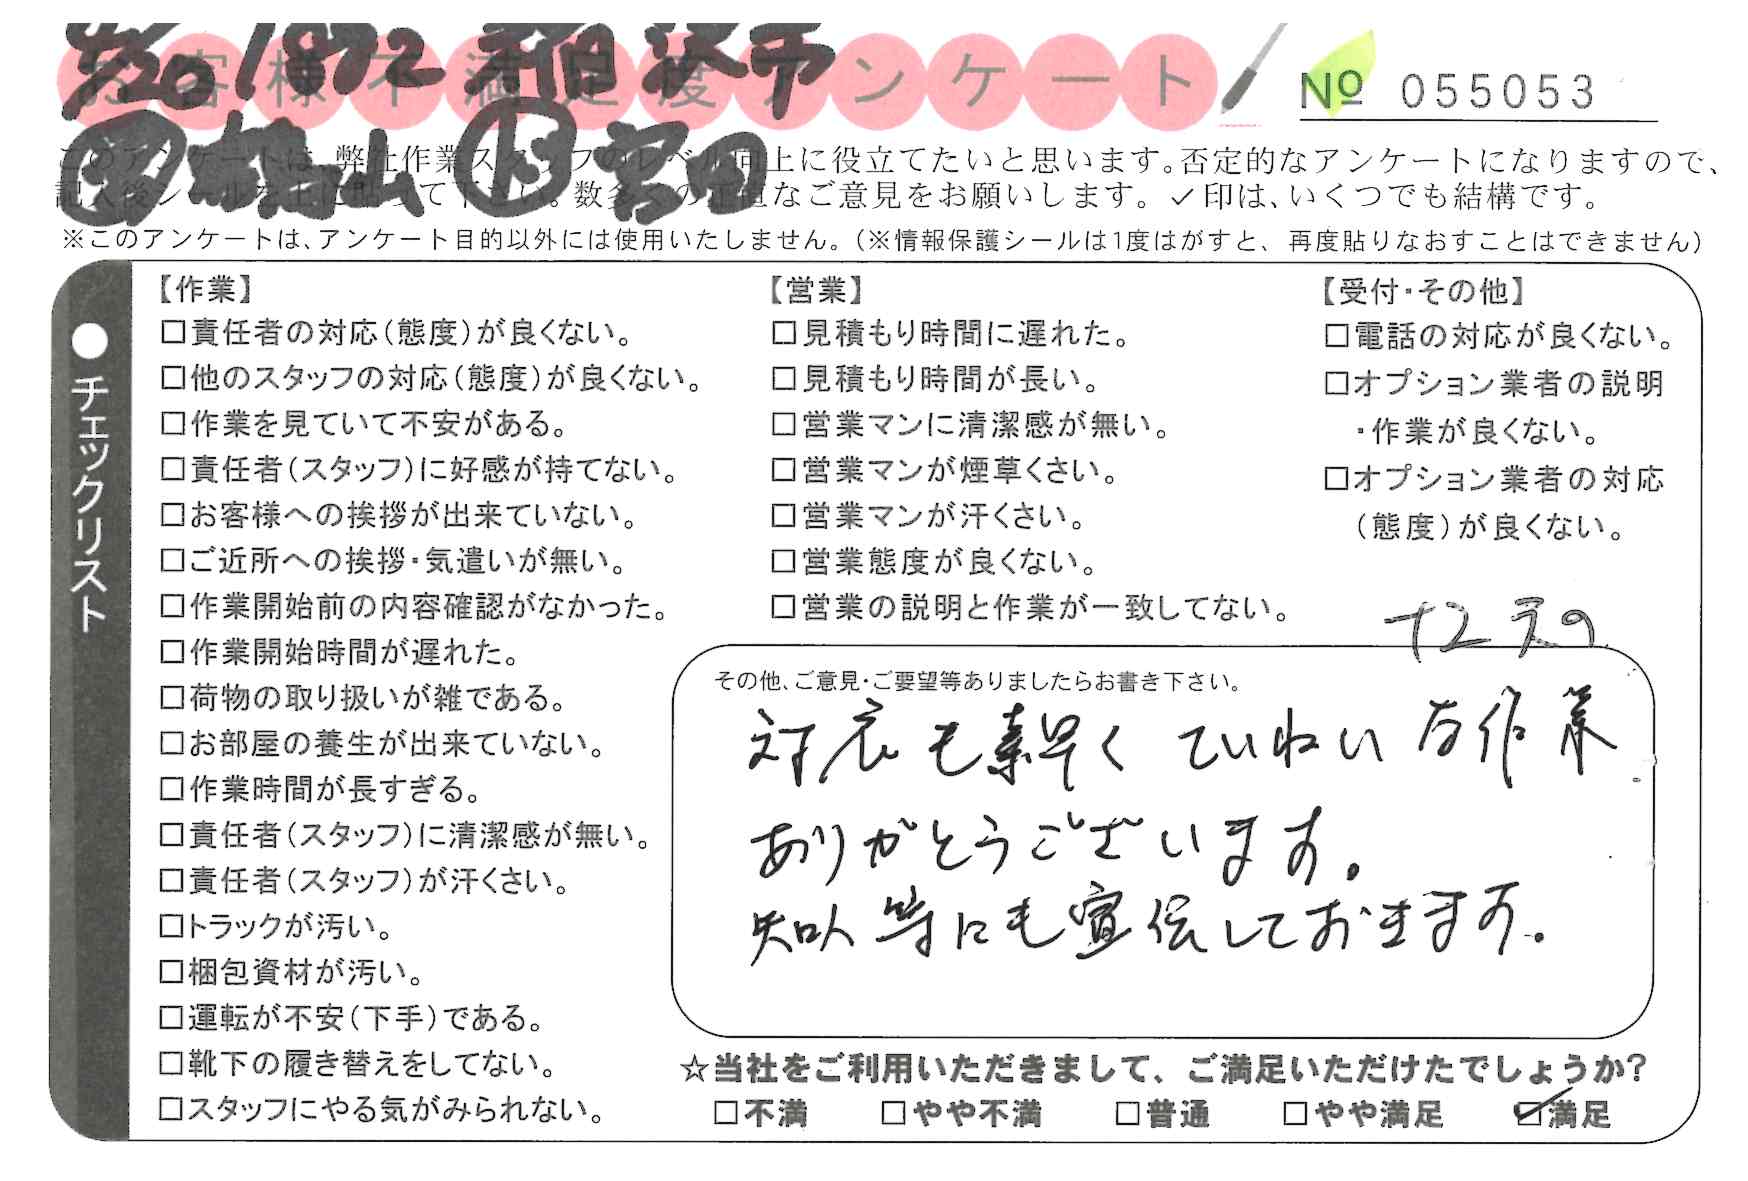 4/20 1872 稲沢市
お客様不満足度アンケート
№ 055053
このアンケートは、弊社作業スタッフのレベル向上に役立てたいと思います。否定的なアンケートになりますので、
記入後シールを上に貼って下さい。数多くの正直なご意見をお願いします。✓印は、いくつでも結構です。
※このアンケートは、アンケート目的以外には使用いたしません。（※情報保護シールは1度はがすと、再度貼りなおすことはできません）
●チェックリスト
【作業】
□責任者の対応（態度）が良くない。
□他のスタッフの対応（態度）が良くない。
□作業を見ていて不安がある。
□責任者（スタッフ）に好感が持てない。
□お客様への挨拶が出来ていない。
□ご近所への挨拶・気遣いが無い。
□作業開始前の内容確認がなかった。
□作業開始時間が遅れた。
□荷物の取り扱いが雑である。
□お部屋の養生が出来ていない。
□作業時間が長すぎる。
□責任者（スタッフ）に清潔感が無い。
□責任者（スタッフ）が汗くさい。
□トラックが汚い。
□梱包資材が汚い。
□運転が不安（下手）である。
□靴下の履き替えをしてない。
□スタッフにやる気がみられない。
【営業】
□見積もり時間に遅れた。
□見積もり時間が長い。
□営業マンに清潔感が無い。
□営業マンが煙草くさい。
□営業マンが汗くさい。
□営業態度が良くない。
□営業の説明と作業が一致してない。
【受付・その他】
□電話の対応が良くない。
□オプション業者の説明
・作業が良くない。
□オプション業者の対応
（態度）が良くない。
その他、ご意見・ご要望等ありましたらお書き下さい。
対応も素早くていねいな作業
ありがとうございます。
知人等にも宣伝しておきます。
☆当社をご利用いただきまして、ご満足いただけたでしょうか?
□不満 □やや不満 □普通 □やや満足 ☑満足